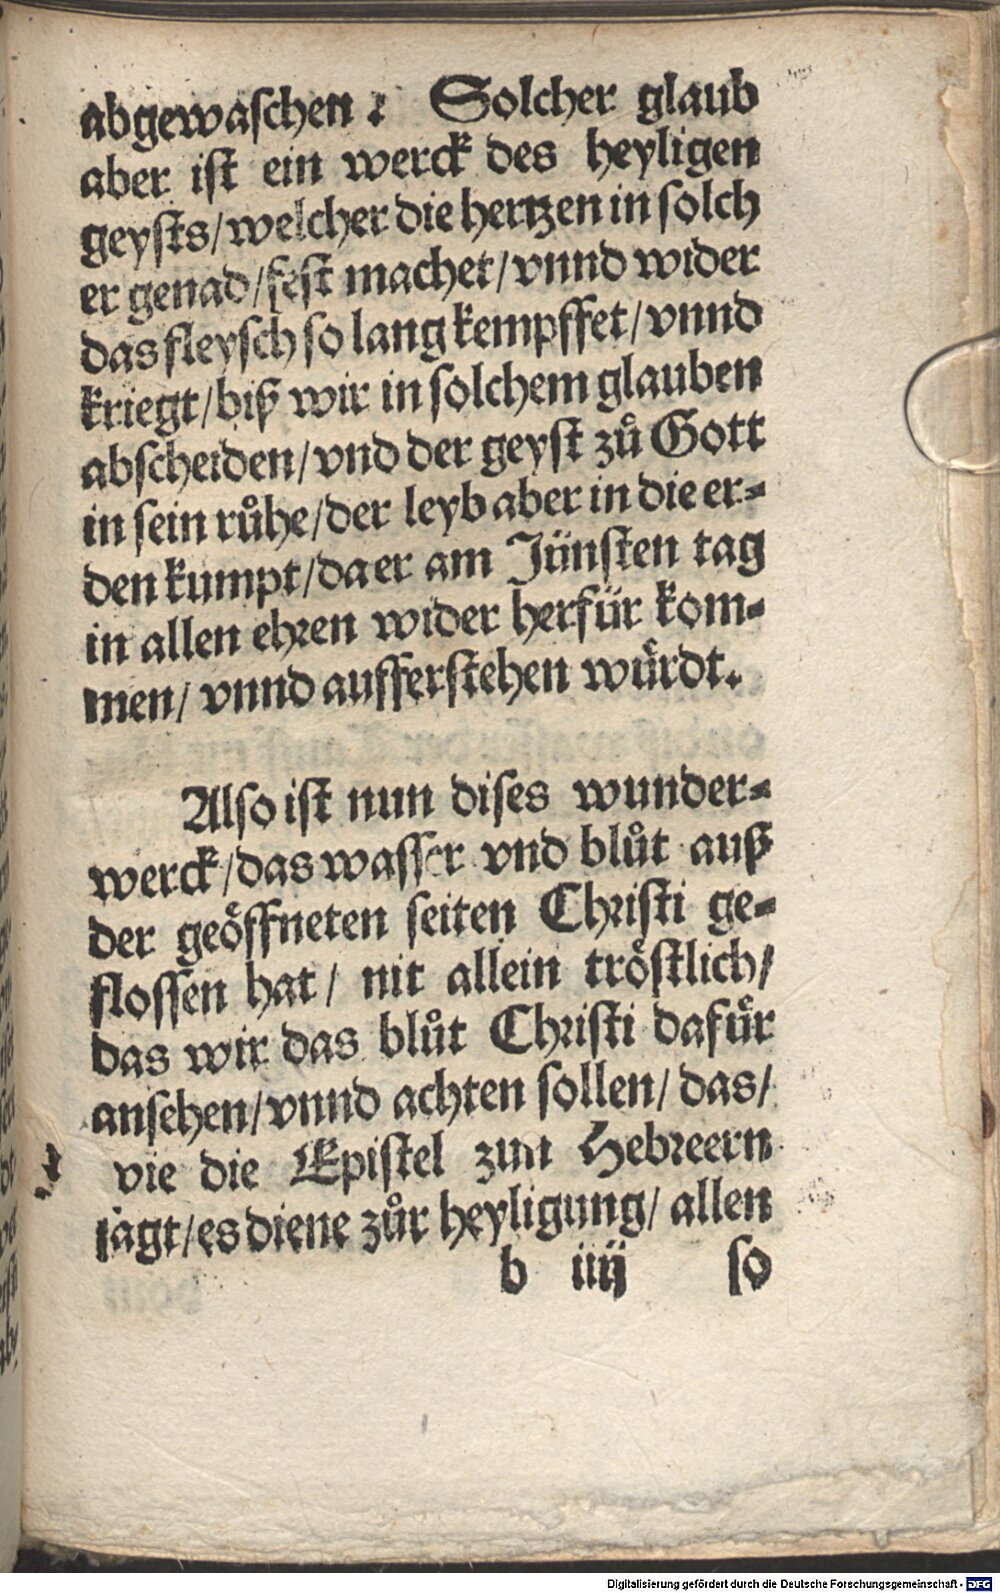 abgewaschen? Solcher glaub
aber ist ein werck des heyligen
geysts/welcher die hertzen in solch
er genad/fest machet/vnnd wider
das fleysch so lang kempffet/vnnd
kriegt/biß wir in solchem glauben
abscheiden/vnd der geyst zuͦ Gott
in sein ruͦhe/der leyb aber in die er-
den kumpt/da er am Jünsten tag
in allen ehren wider herfür kom-
men/ vnnd aufferstehen wuͤrdt.
Also ist nun dises wunder-
werck/das wasser vnd bluͦt auß
der geoͤffneten seiten Christi ge-
flossen hat/ nit allein troͤstlich/
das wir das bluͦt Christi dafuͤr
ansehen/vnnd achten sollen/ das/
vie die Epistel zun Hebreern
sagt/es diene zuͦr heyligung/ allen
b iiij so
Digitalisierung gefördert durch die Deutsche Forschungsgemeinschaft - DFG